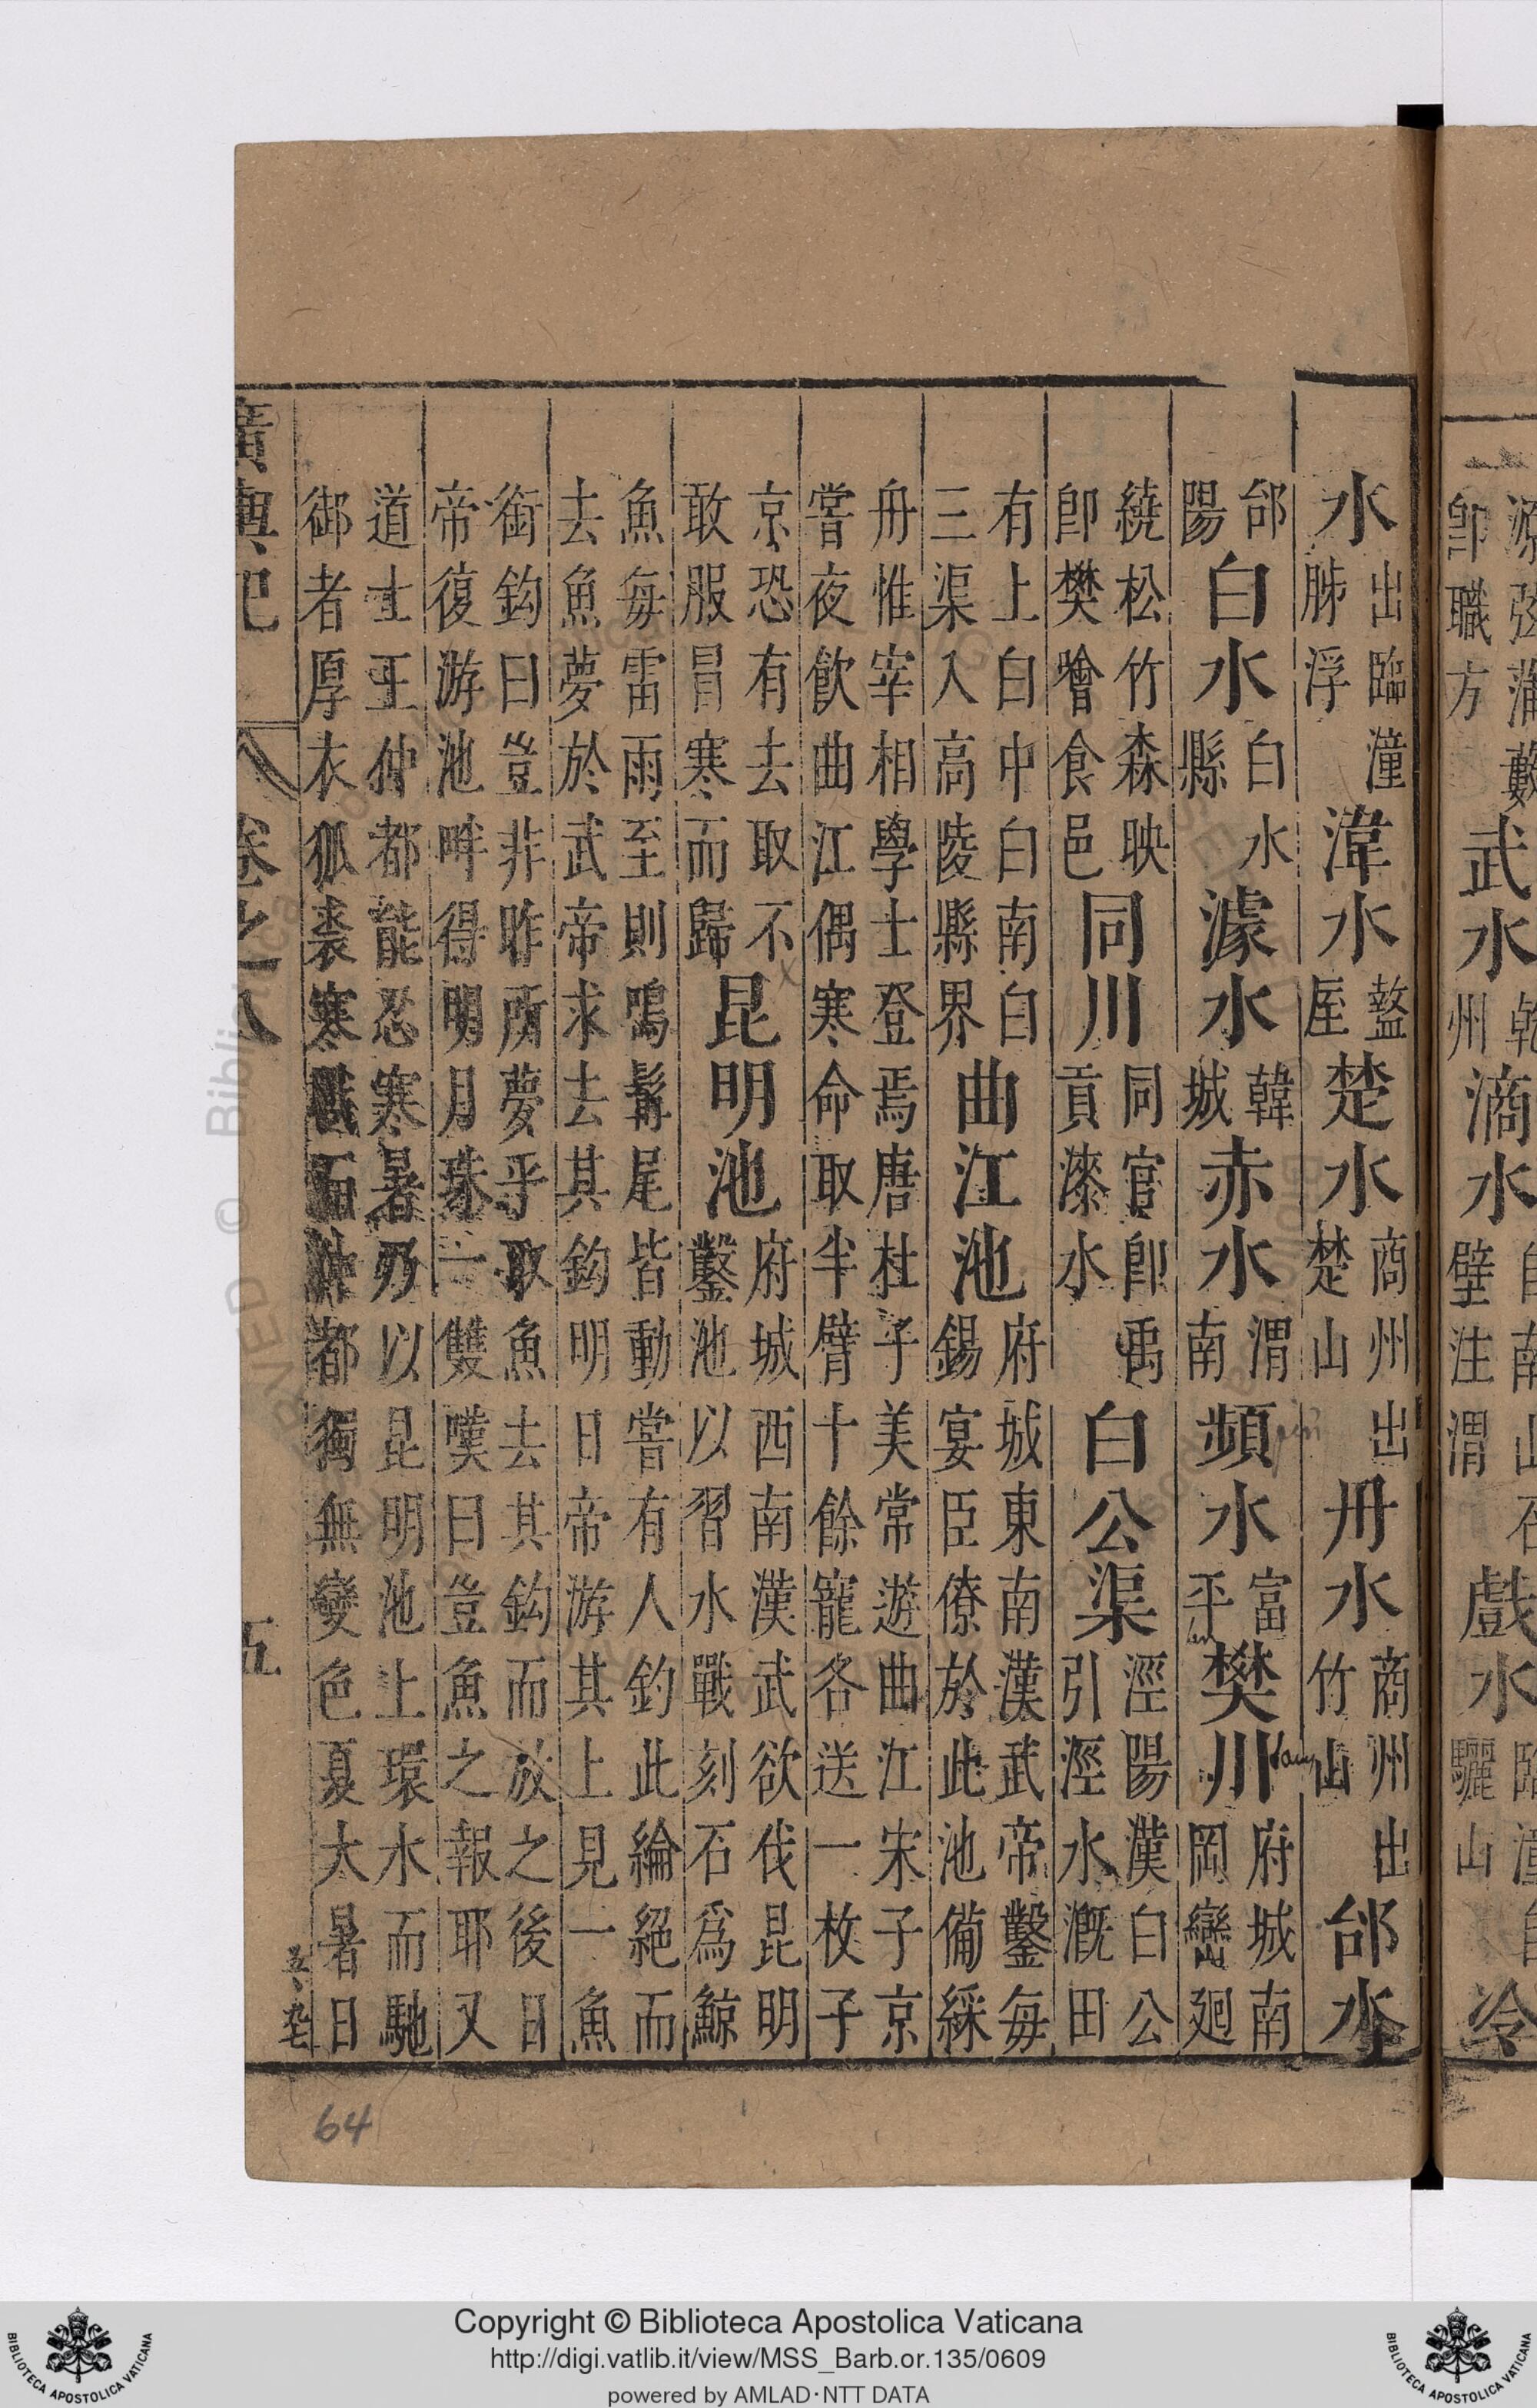 源弦蒲藪即職方武水乾州滴水自南山石壁注渭戲水臨潼驪山冷
水出臨潼胏浮湋水盩厔楚水商州出楚山丹水商州出竹山邰水
邰陽白水白水縣澽水韓城赤水渭南頻水富平樊川府城南岡巒廻
繞松竹森映即樊噲食邑同川同官即禹貢漆水白公渠涇陽漢白公引涇水漑田
有上白中白南白三渠入高陵縣界曲江池府城東南漢武帝鑿每錫宴臣僚於此池備綵
舟惟宰相學士登焉唐杜子美常遊曲江宋子京嘗夜飲曲江偶寒命取半臂十餘寵各送一枚子
京恐有去取不敢服冒寒而歸昆明池府城西南漢武欲伐昆明鑿池以習水戰刻石爲鯨
魚每雷雨至則鳴鬐尾皆動嘗有人釣此綸絕而去魚夢於武帝求去其鈎明日帝游其上見一魚
銜鈎曰豈非昨所夢乎取魚去其鈎而放之後日帝復游池畔得明月珠一雙嘆曰豈魚之報耶又
道士王仲都能忍寒暑乃以昆明池上環水而馳御者厚衣狐裘寒戰而仲都獨無變色夏大暑日
廣輿記 卷之八 五
64
© Biblioteca Apostolica Vaticana
Copyright © Biblioteca Apostolica Vaticana
http://digi.vatlib.it/view/MSS_Barb.or.135/0609
powered by AMLAD·NTT DATA
BIBLIOTECA APOSTOLICA VATICANA
BIBLIOTECA APOSTOLICA VATICANA